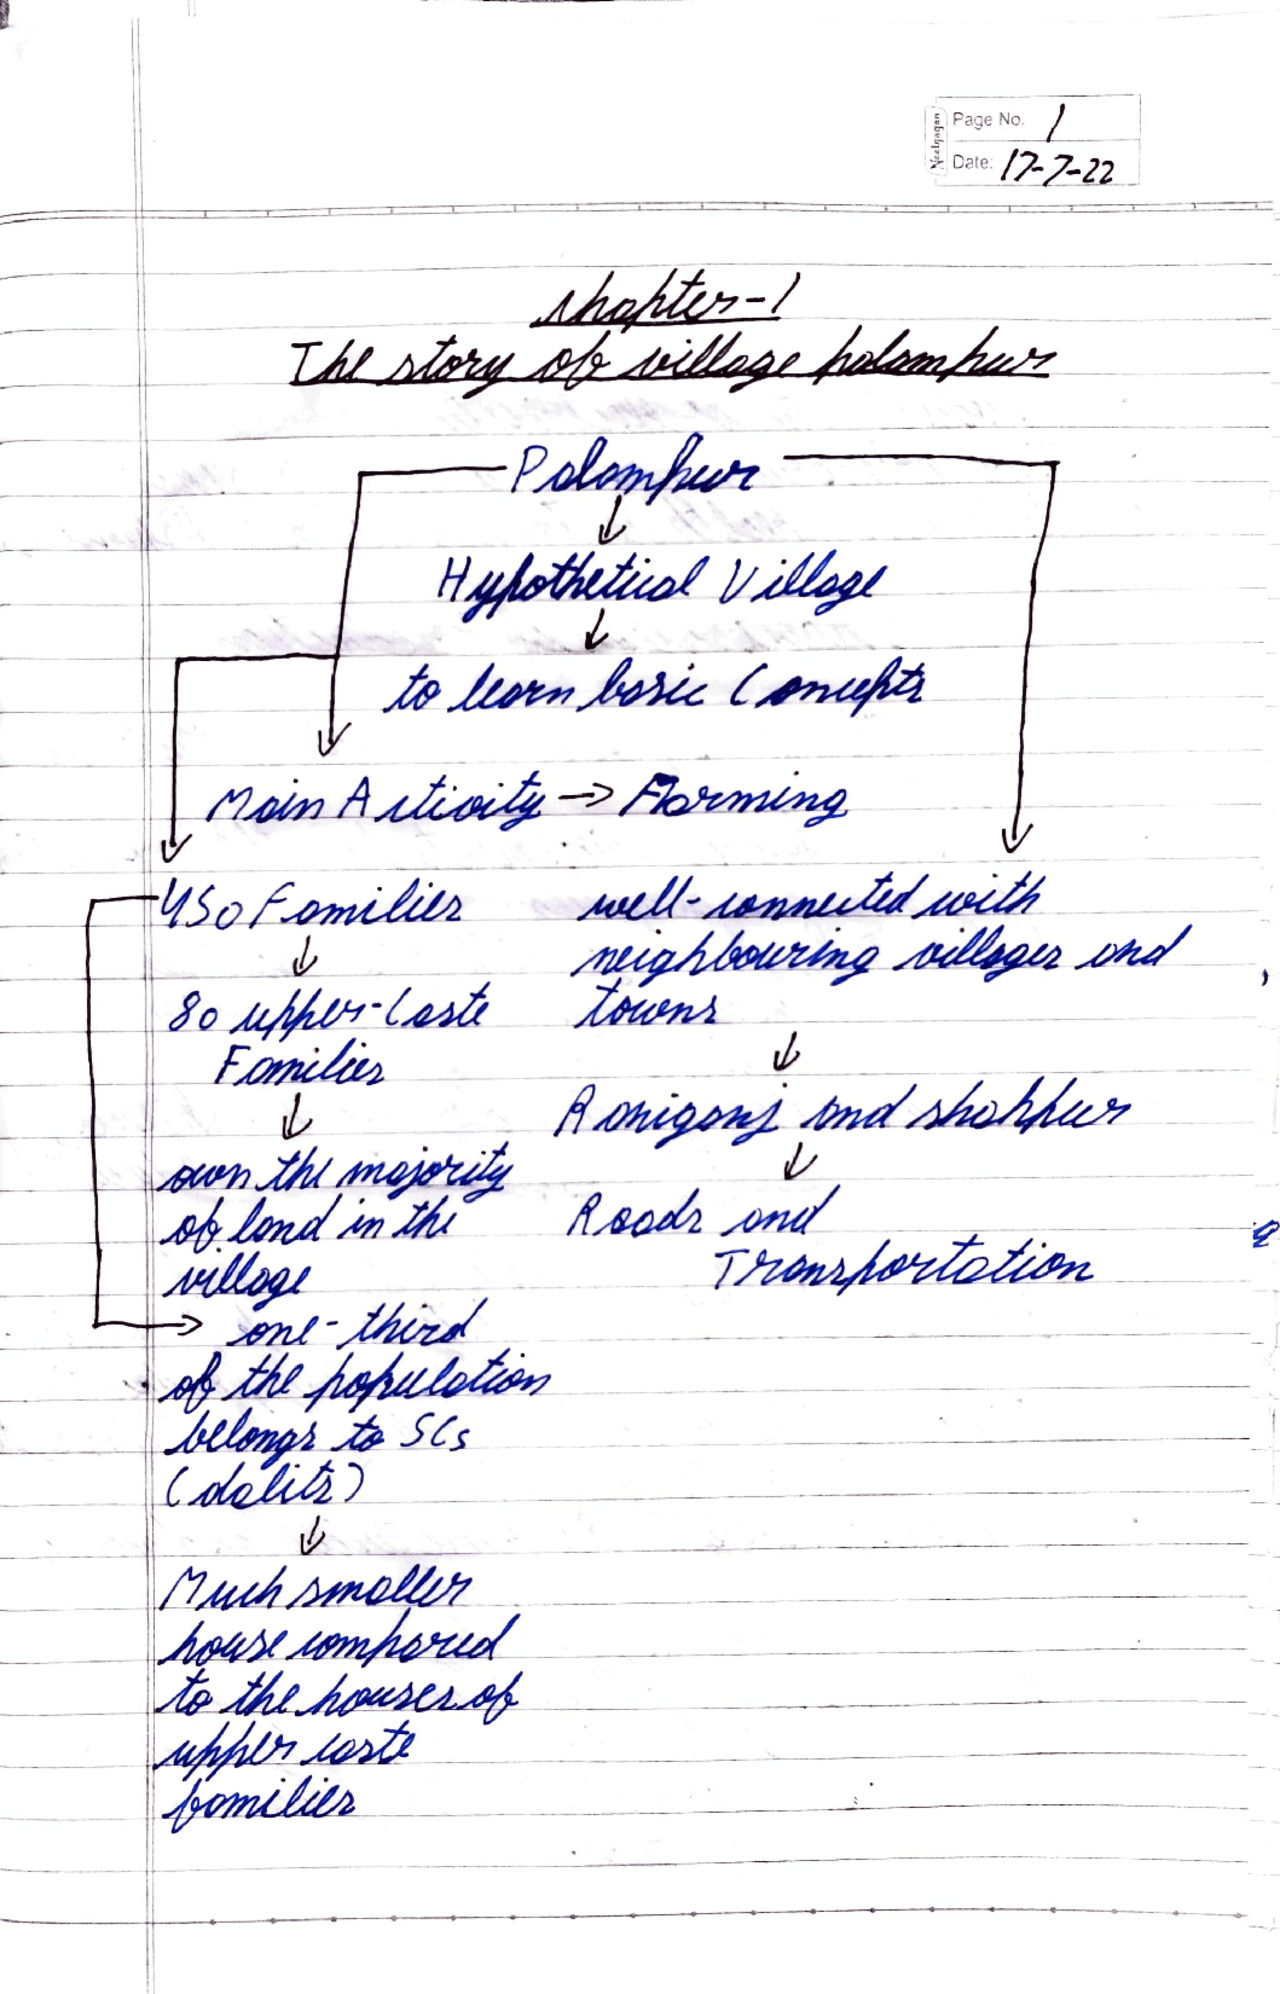 Neelgagan
Page No. 1
Date: 17-7-22
chapter-1
The story of village palampur
Palampur
Hypothetical Village
to learn basic Concepts
Main Activity → Farming
450 Families
80 upper-Caste
Families
own the majority
of land in the
village
one-third
of the population
belongs to SCs
(dalits)
Much smaller
house compared
to the houses of
upper caste
families
well-connected with
neighbouring villages and
towns
Raniganj and shahpur
Roads and
Transportation